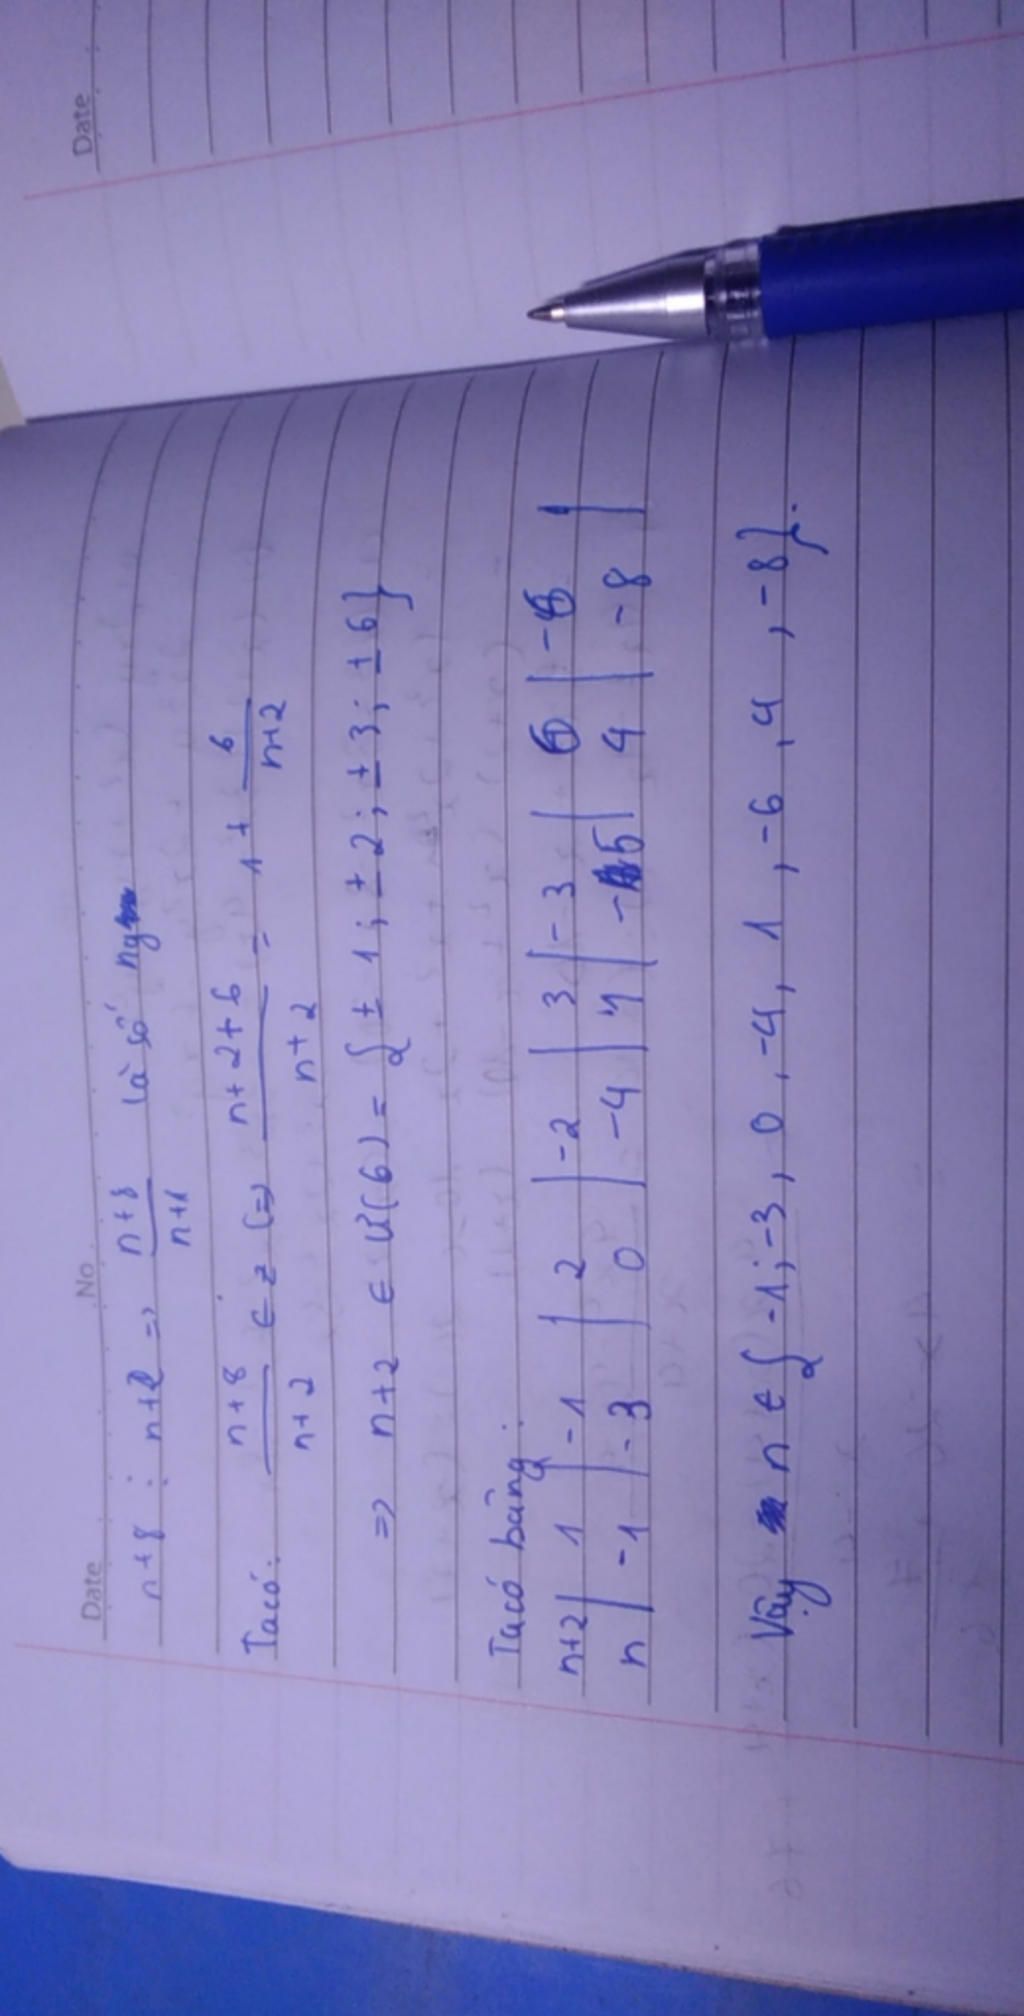 Date
Date No
n+8 ⋮ n+2 => n+8/n+2 là số
Ta có: n+8/n+2 ∈ z (=) n+2+6/n+2 = 1 + 6/n+2
=> n+2 ∈ Ư(6) = { ± 1; ± 2; ± 3; ± 6}
Ta có bảng:
n+2 | 1 | -1 | 2 | -2 | 3 | -3 | 6 | -6 |
n | -1 | -3 | 0 | -4 | 1 | -5 | 4 | -8 |
Vậy n ∈ { -1; -3, 0, -4, 1, -6, 4, -8}.